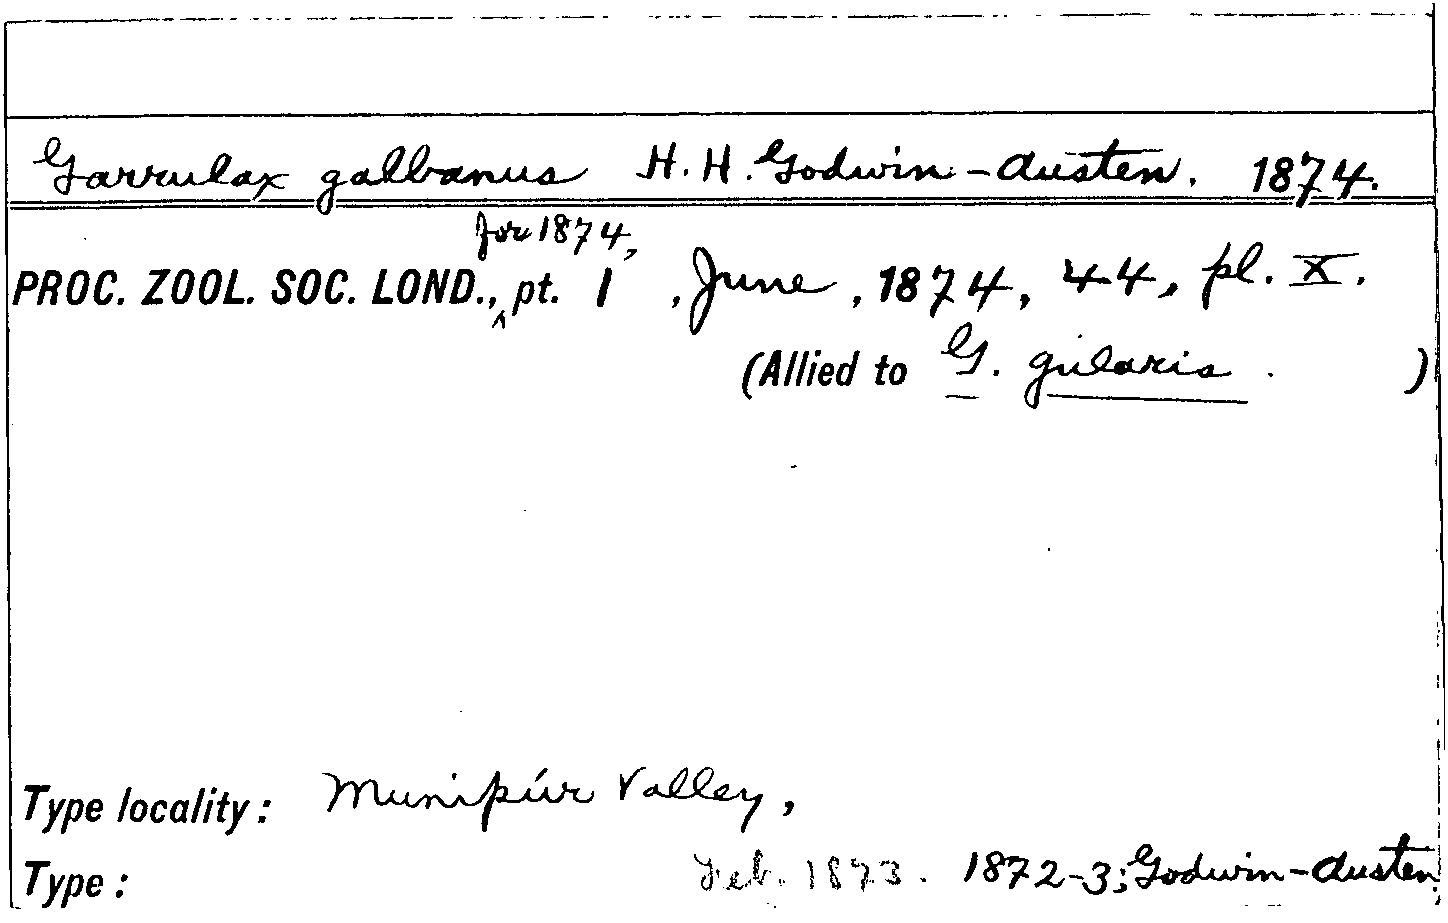 Garrulax galbanus H. H. Godwin-Austen. 1874.
for 1874,
PROC. ZOOL. SOC. LOND., pt. 1, June, 1874, 44, pl. X.
(Allied to G. gularis. )
Type locality: Munipúr Valley,
Type: Feb. 1873. 1872-3; Godwin-Austen